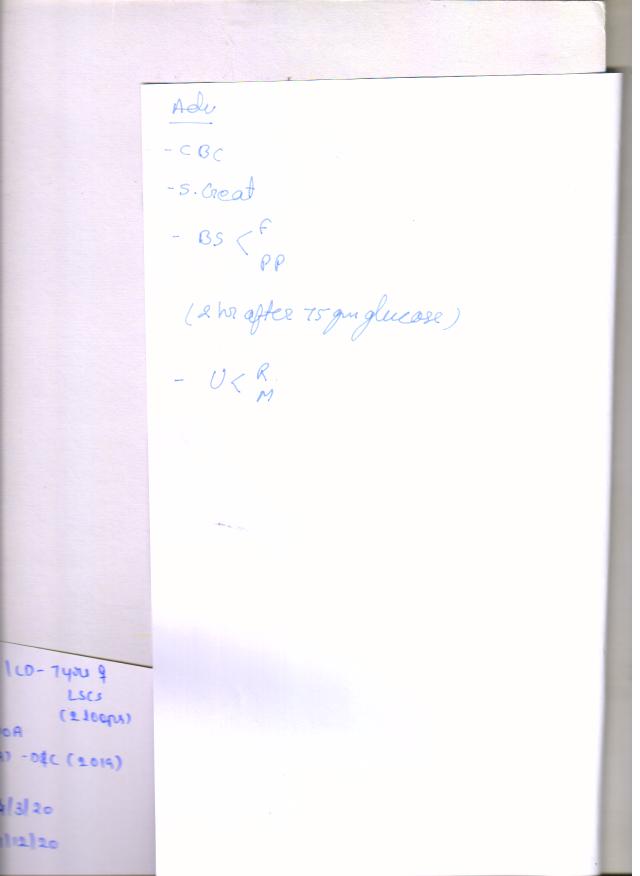 Adv
- CBC
- S. Creat
- BS < F
PP
(2 hr after 75 gm glucose)
- U < R
M
LCD - 7 yrs ♀
LSCS
(2 loops)
OA
- D&C (2019)
/3/20
/12/20